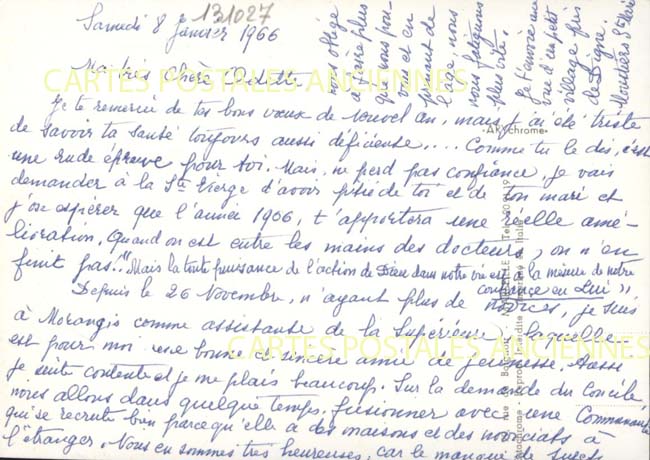 131027
Samedi 8 Janvier 1966
Ma très chère Odette
Je te remercie de tes bons vœux de nouvel an, mais j'ai été triste
de savoir ta santé toujours aussi déficiente.... Comme tu le dis, c'est
une rude épreuve pour toi. Mais, ne perd pas confiance, je vais
demander à la Ste Vierge d'avoir pitié de toi et de ton mari et
j'ose espérer que l'année 1966, t'apportera une réelle amé-
lioration, Quand on est entre les mains des docteurs, on n'en
finit pas!" Mais la toute puissance de l'action de Dieu dans notre vie est à la mesure de notre
confiance en Lui",
Depuis le 26 Novembre, n'ayant plus de novices, je suis
à Morangis comme assistante de la Supérieure, laquelle
est pour moi une bonne et sincère amie de jeunesse. Aussi
je suis contente et je me plais beaucoup. Sur la demande du Concile
nous allons dans quelque temps, fusionner avec une Communauté
qui se recrute bien parce qu'elle a des maisons et des noviciats à
l'étranger. Nous en sommes très heureuses, car le manque de sujets
nous oblige
à faire plus
que nous pou-
vons et en
prenant de
l'âge, nous
nous fatiguons
plus vite.
Je t'envoie une
vue d'un petit
village près
de Digne.
Moustiers Ste Marie
"ARYchrome"
CARTES POSTALES ANCIENNES
CARTES POSTALES ANCIENNES